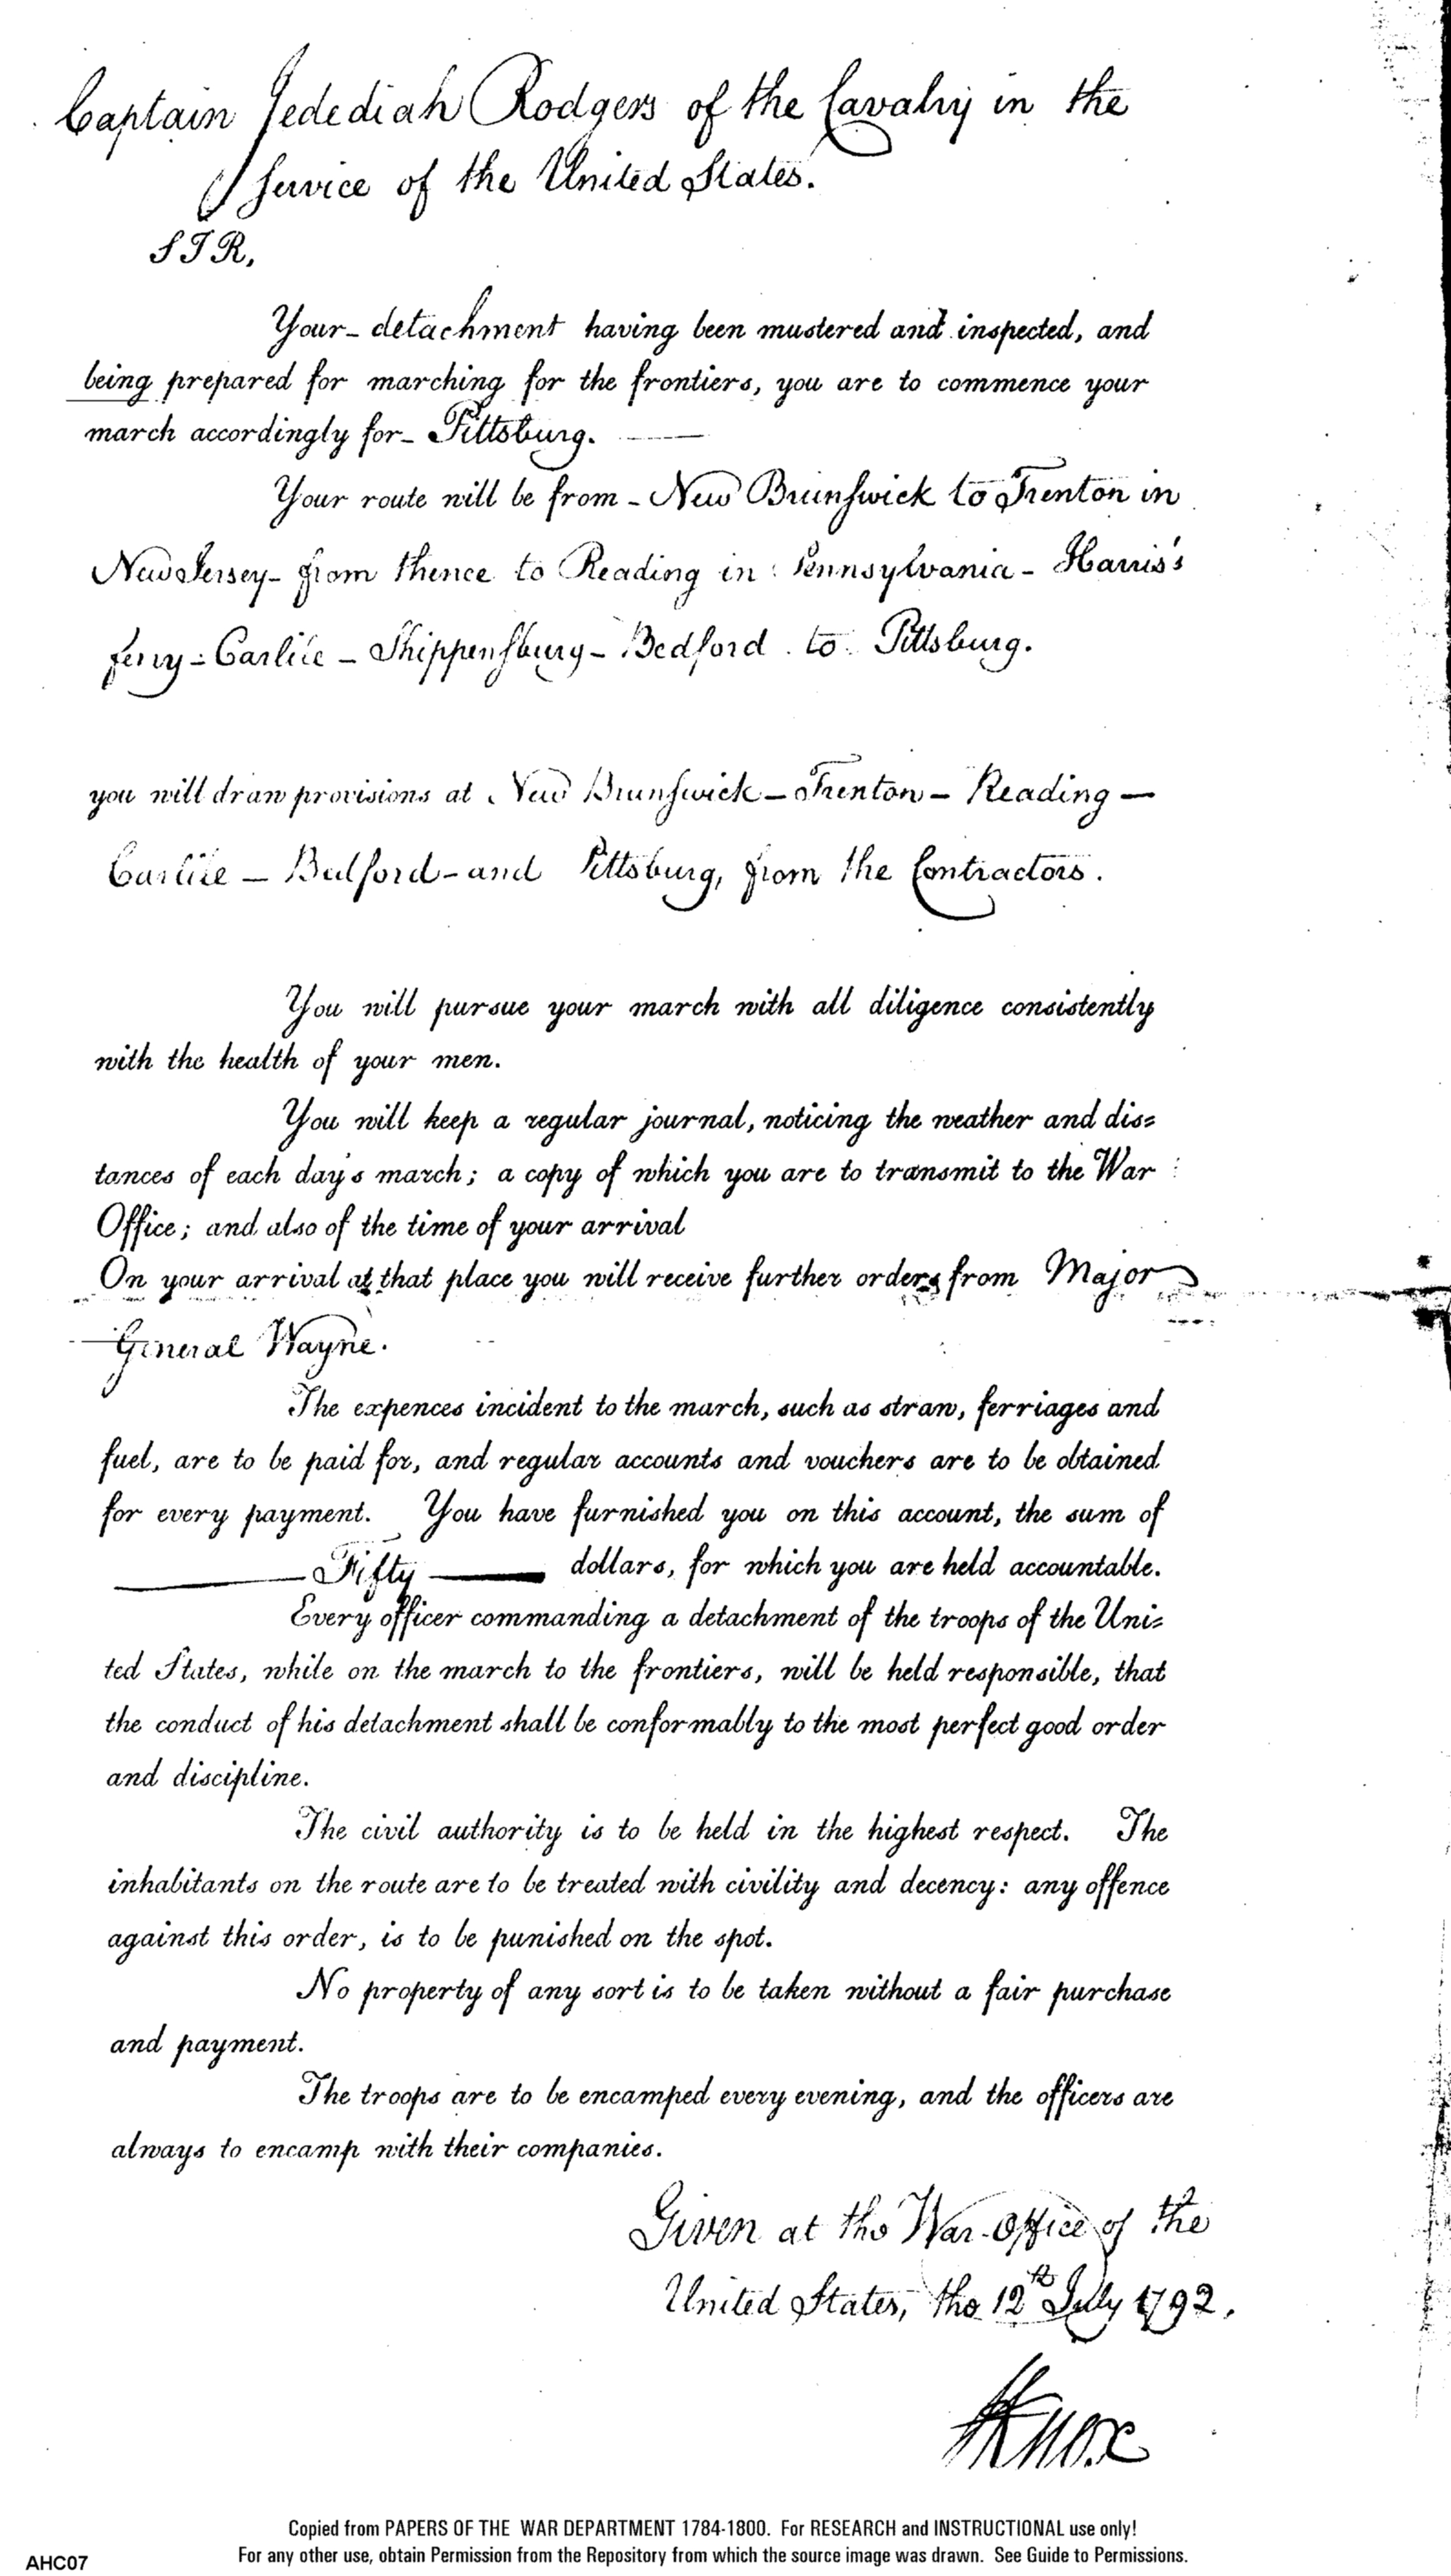 Captain Jedediah Rodgers of the Cavalry in the
Service of the United States.
SIR,
Your - detachment having been mustered and inspected, and
being prepared for marching for the frontiers, you are to commence your
march accordingly for - Pittsburg.
Your route will be from - New Brunswick to Trenton in
New Jersey - from thence to Reading in Pennsylvania - Harris's
ferry - Carlile - Shippensburg - Bedford to Pittsburg.
you will draw provisions at New Brunswick - Trenton - Reading -
Carlile - Bedford - and Pittsburg, from the Contractors.
You will pursue your march with all diligence consistently
with the health of your men.
You will keep a regular journal, noticing the weather and dis=
tances of each day's march; a copy of which you are to transmit to the War
Office; and also of the time of your arrival
On your arrival at that place you will receive further orders from Major
General Wayne.
The expences incident to the march, such as straw, ferriages and
fuel, are to be paid for, and regular accounts and vouchers are to be obtained
for every payment. You have furnished you on this account, the sum of
Fifty dollars, for which you are held accountable.
Every officer commanding a detachment of the troops of the Uni=
ted States, while on the march to the frontiers, will be held responsible, that
the conduct of his detachment shall be conformably to the most perfect good order
and discipline.
The civil authority is to be held in the highest respect. The
inhabitants on the route are to be treated with civility and decency: any offence
against this order, is to be punished on the spot.
No property of any sort is to be taken without a fair purchase
and payment.
The troops are to be encamped every evening, and the officers are
always to encamp with their companies.
Given at the War-Office of the
United States, the 12th July 1792.
HKnox
Copied from PAPERS OF THE WAR DEPARTMENT 1784-1800. For RESEARCH and INSTRUCTIONAL use only!
For any other use, obtain Permission from the Repository from which the source image was drawn. See Guide to Permissions.
AHC07